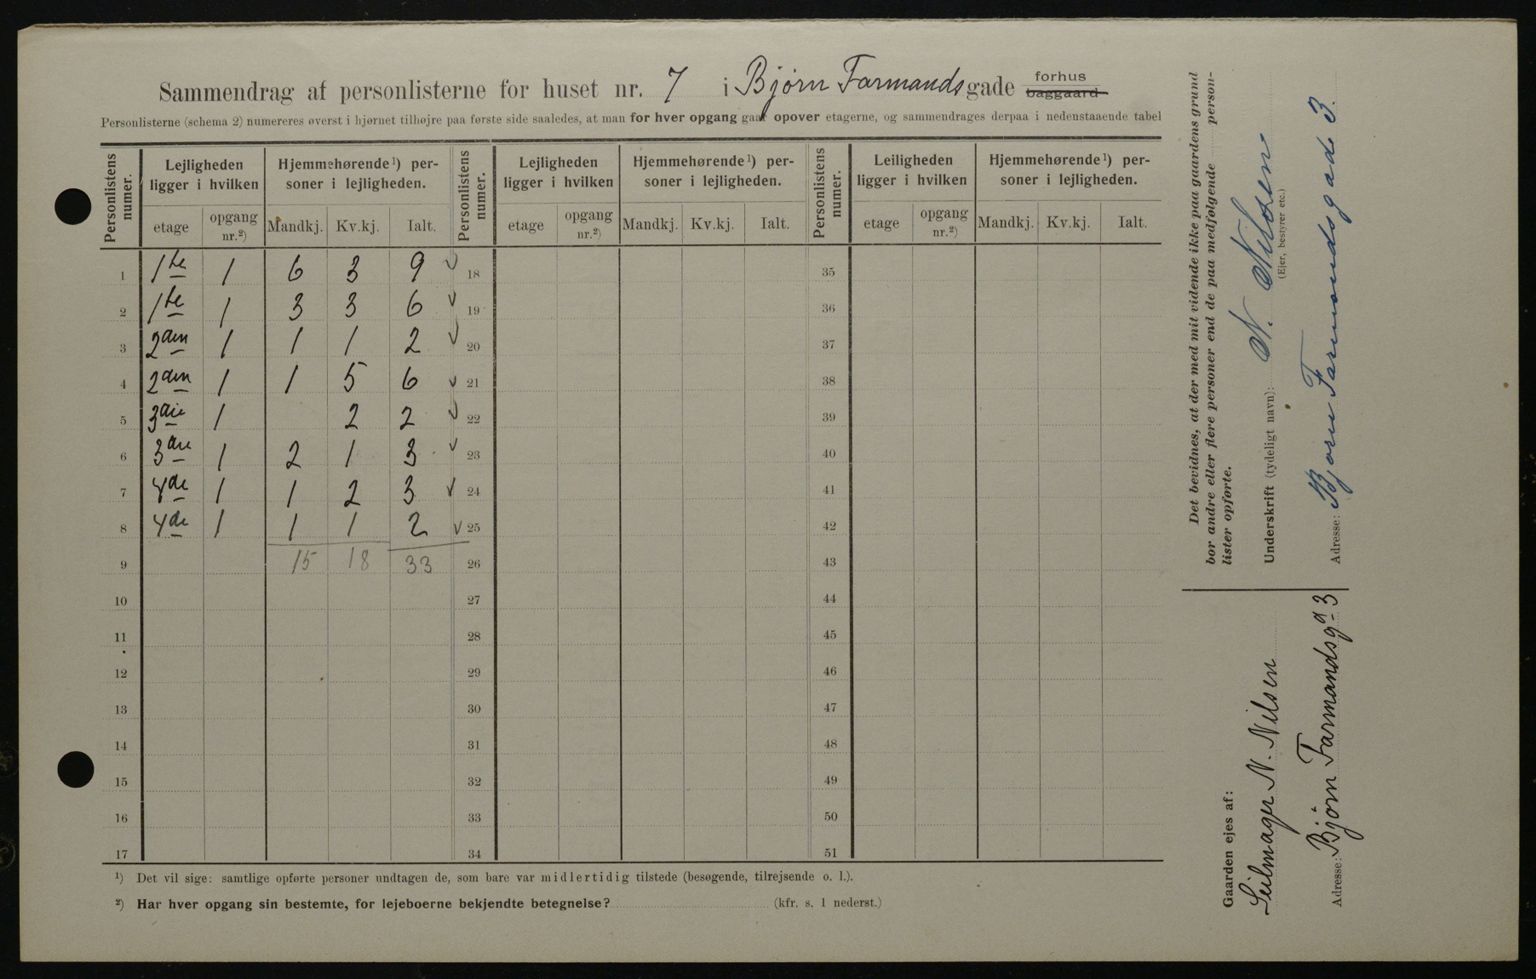 Sammendrag af personlisterne for huset nr. 7 i Bjørn Farmandsgade forhus baggaard
Personlisterne (schema 2) numereres øverst i hjørnet tilhøjre paa første side saaledes, at man for hver opgang gaar opover etagerne, og sammendrages derpaa i nedenstaaende tabel
Personlistens numer. Lejligheden ligger i hvilken Hjemmehørende¹) personer i lejligheden. Personlistens numer. Lejligheden ligger i hvilken Hjemmehørende¹) personer i lejligheden. Personlistens numer. Leiligheden ligger i hvilken Hjemmehørende¹) personer i lejligheden.
etage opgang nr.²) Mandkj. Kv.kj. Ialt. etage opgang nr.²) Mandkj. Kv.kj. Ialt. etage opgang nr.²) Mandkj. Kv.kj. Ialt.
1 1te 1 6 3 9 ✓ 18 35
2 1te 1 3 3 6 ✓ 19 36
3 2den 1 1 1 2 ✓ 20 37
4 2den 1 1 5 6 ✓ 21 38
5 3die 1 2 2 ✓ 22 39
6 3die 1 2 1 3 ✓ 23 40
7 4de 1 1 2 3 ✓ 24 41
8 4de 1 1 1 2 ✓ 25 42
9 15 18 33 26 43
10 27 44
11 28 45
12 29 46
13 30 47
14 31 48
15 32 49
16 33 50
17 34 51
¹) Det vil sige: samtlige opførte personer undtagen de, som bare var midlertidig tilstede (besøgende, tilrejsende o. l.).
²) Har hver opgang sin bestemte, for lejeboerne bekjendte betegnelse? (kfr. s. 1 nederst.)
Det bevidnes, at der med mit vidende ikke paa gaardens grund
bor andre eller flere personer end de paa medfølgende personlister opførte.
Underskrift (tydeligt navn): N. Nilsen
(Ejer, bestyrer etc.)
Adresse: Bjørn Farmandsgade 3.
Gaarden ejes af:
Seilmager N. Nilsen
Adresse: Bjørn Farmandsgd 3